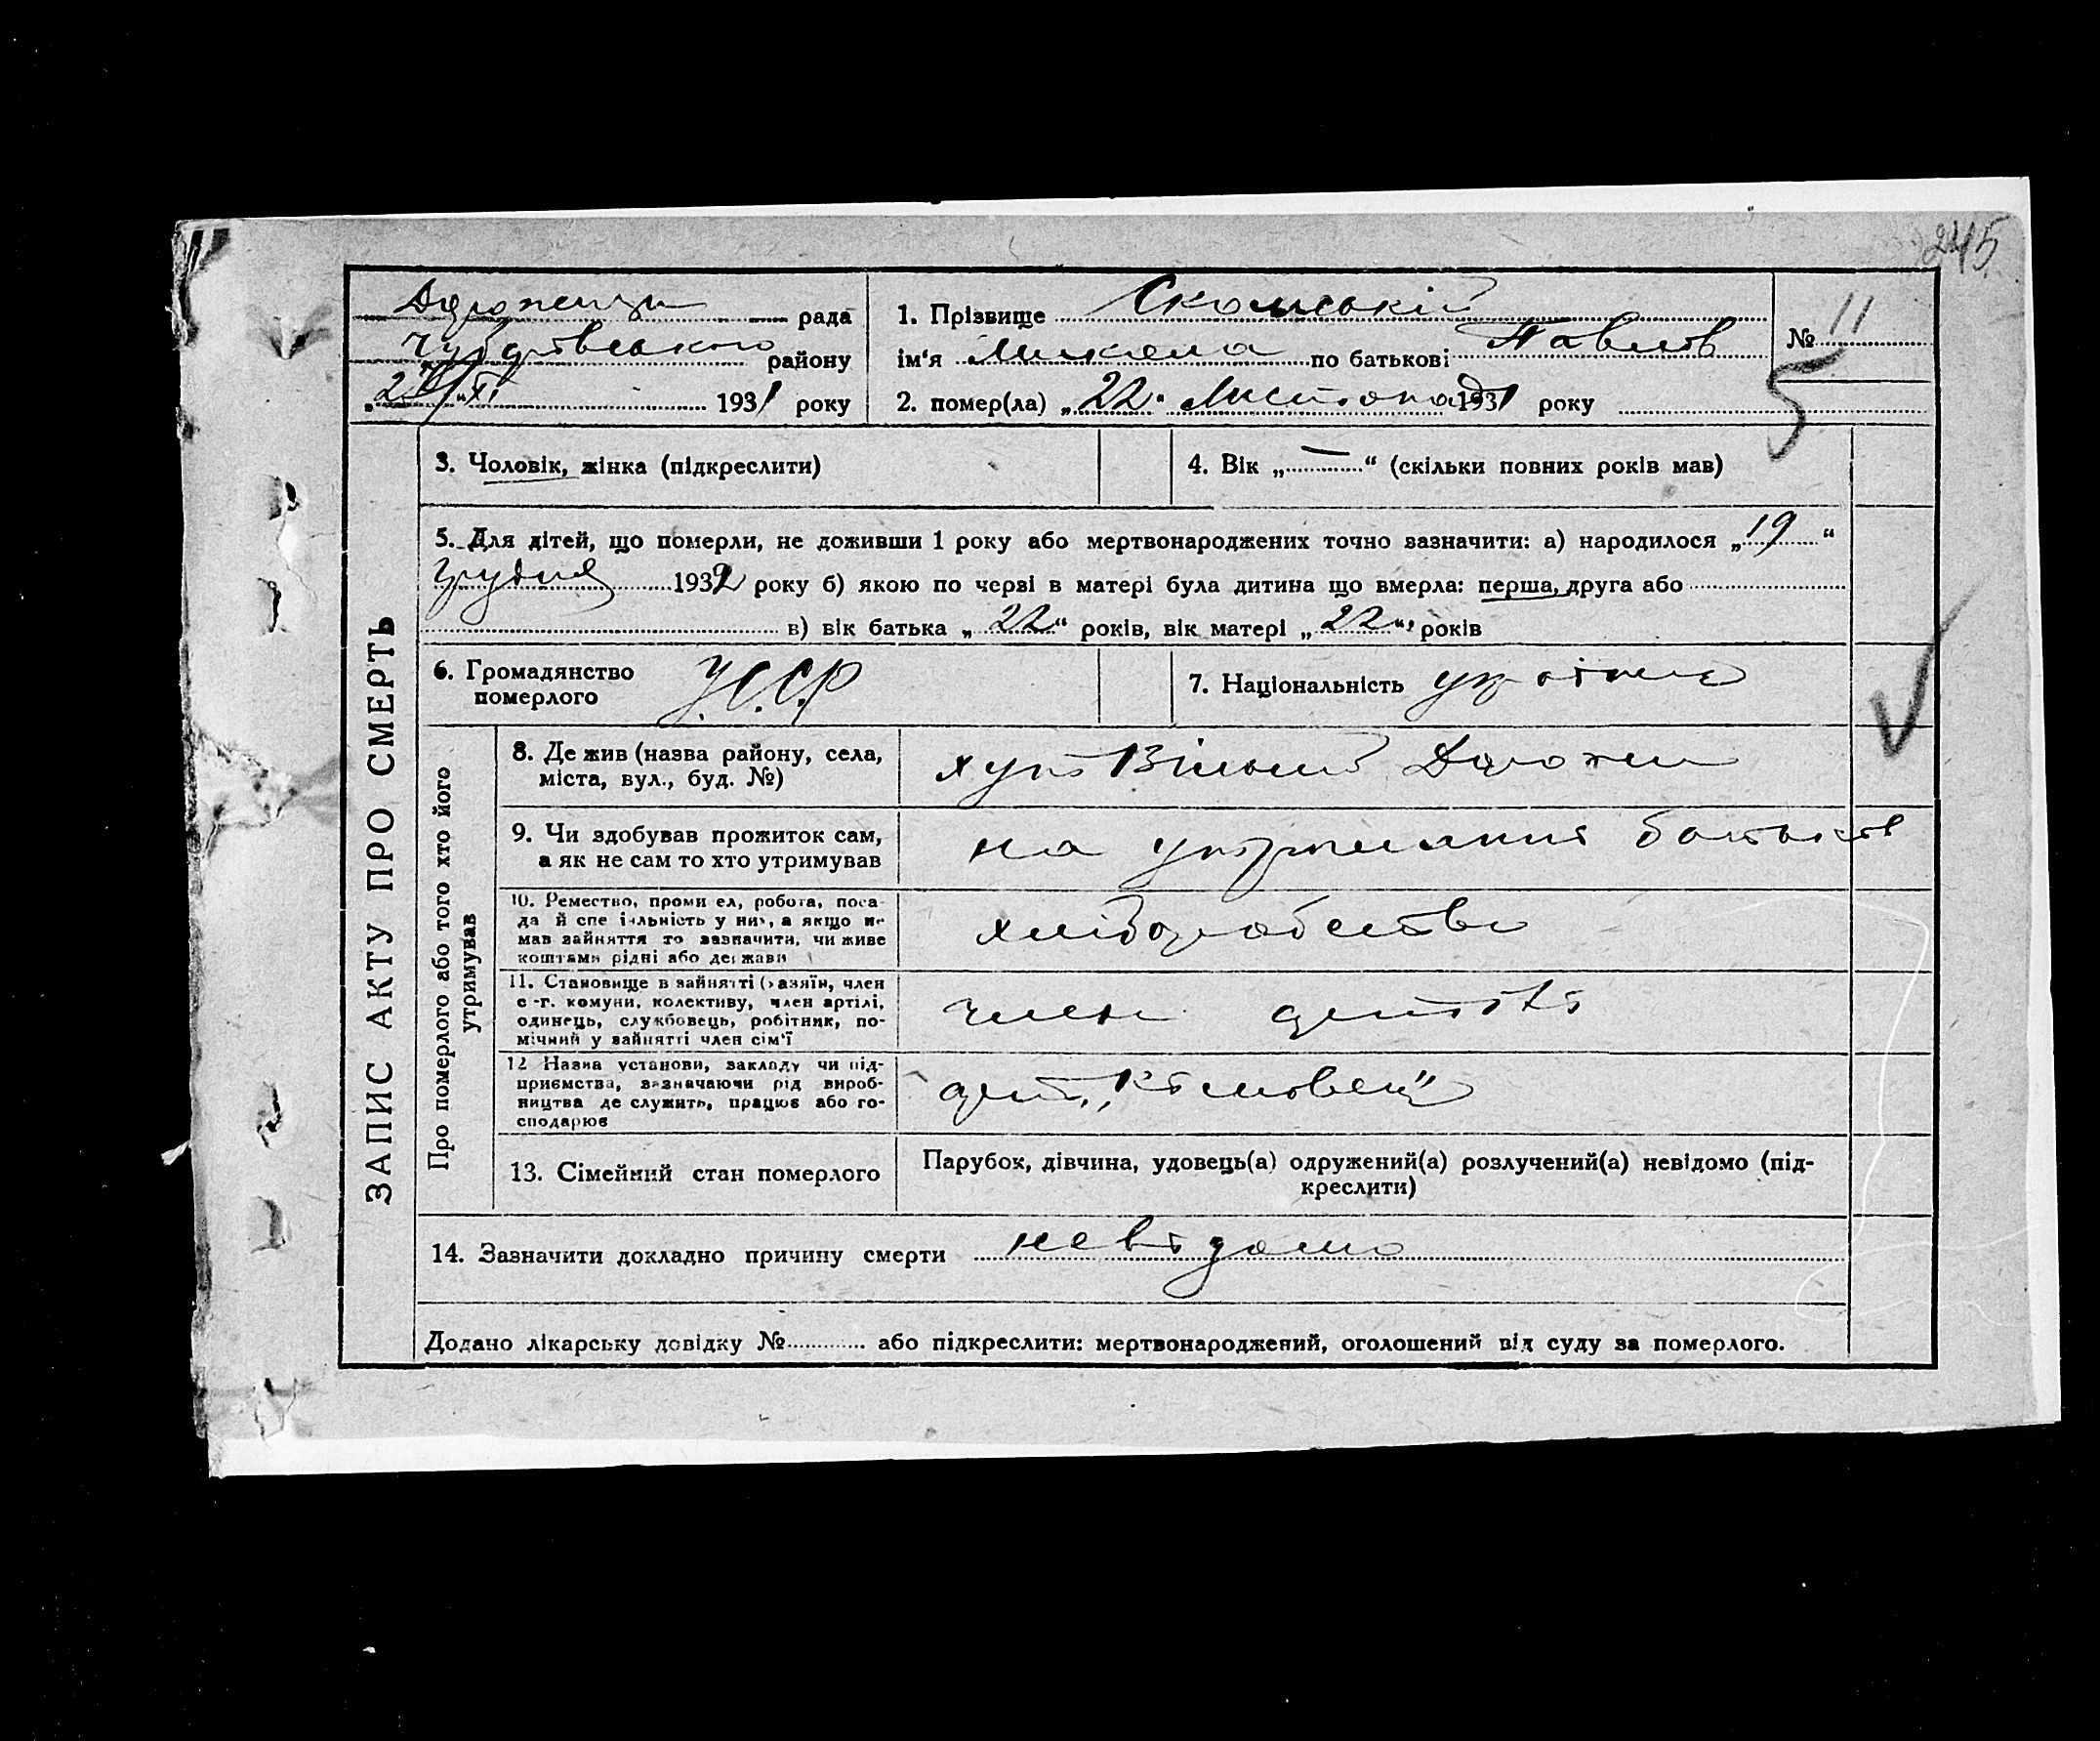 245
рада
Чуднівського району
"24/XI 1931 року
1. Прізвище Скомський
ім'я Микола по батькові Павлов
2. помер(ла) „22" Листопад 1931 року
№ 11
5
ЗАПИС АКТУ ПРО СМЕРТЬ
3. Чоловік, жінка (підкреслити)
4. Вік „—“ (скільки повних років мав)
5. Для дітей, що померли, не доживши 1 року або мертвонароджених точно зазначити: а) народилося „19“
грудня 1932 року б) якою по черві в матері була дитина що вмерла: перша, друга або
в) вік батька „22“ років, вік матері „22“, років
6. Громадянство
померлого
У.С.С.Р
7. Національність україне
Про померлого або того хто його
утримував
8. Де жив (назва району, села,
міста, вул., буд. №)
хут Вільний
9. Чи здобував прожиток сам,
а як не сам то хто утримував
на утриманні батьків
10. Ремество, проми ел, робота, поса-
да й спе іяльність у них, а якщо не
мав зайняття то зазначити, чи живе
коштами рідні або держави
хліборобство
11. Становище в зайнятті (хазяїн, член
с-г. комуни, колективу, член артілі,
одинець, службовець, робітник, по-
мічний у зайнятті член сім'ї
член артілі
12 Назва установи, закладу чи під-
приємства, зазначаючи рід вироб-
ництва де служить, працює або го-
сподарює
арт.
13. Сімейний стан померлого
Парубок, дівчина, удовець(а) одружений(а) розлучений(а) невідомо (під-
креслити)
14. Зазначити докладно причину смерти невідомо
Додано лікарську довідку № або підкреслити: мертвонароджений, оголошений від суду за померлого.